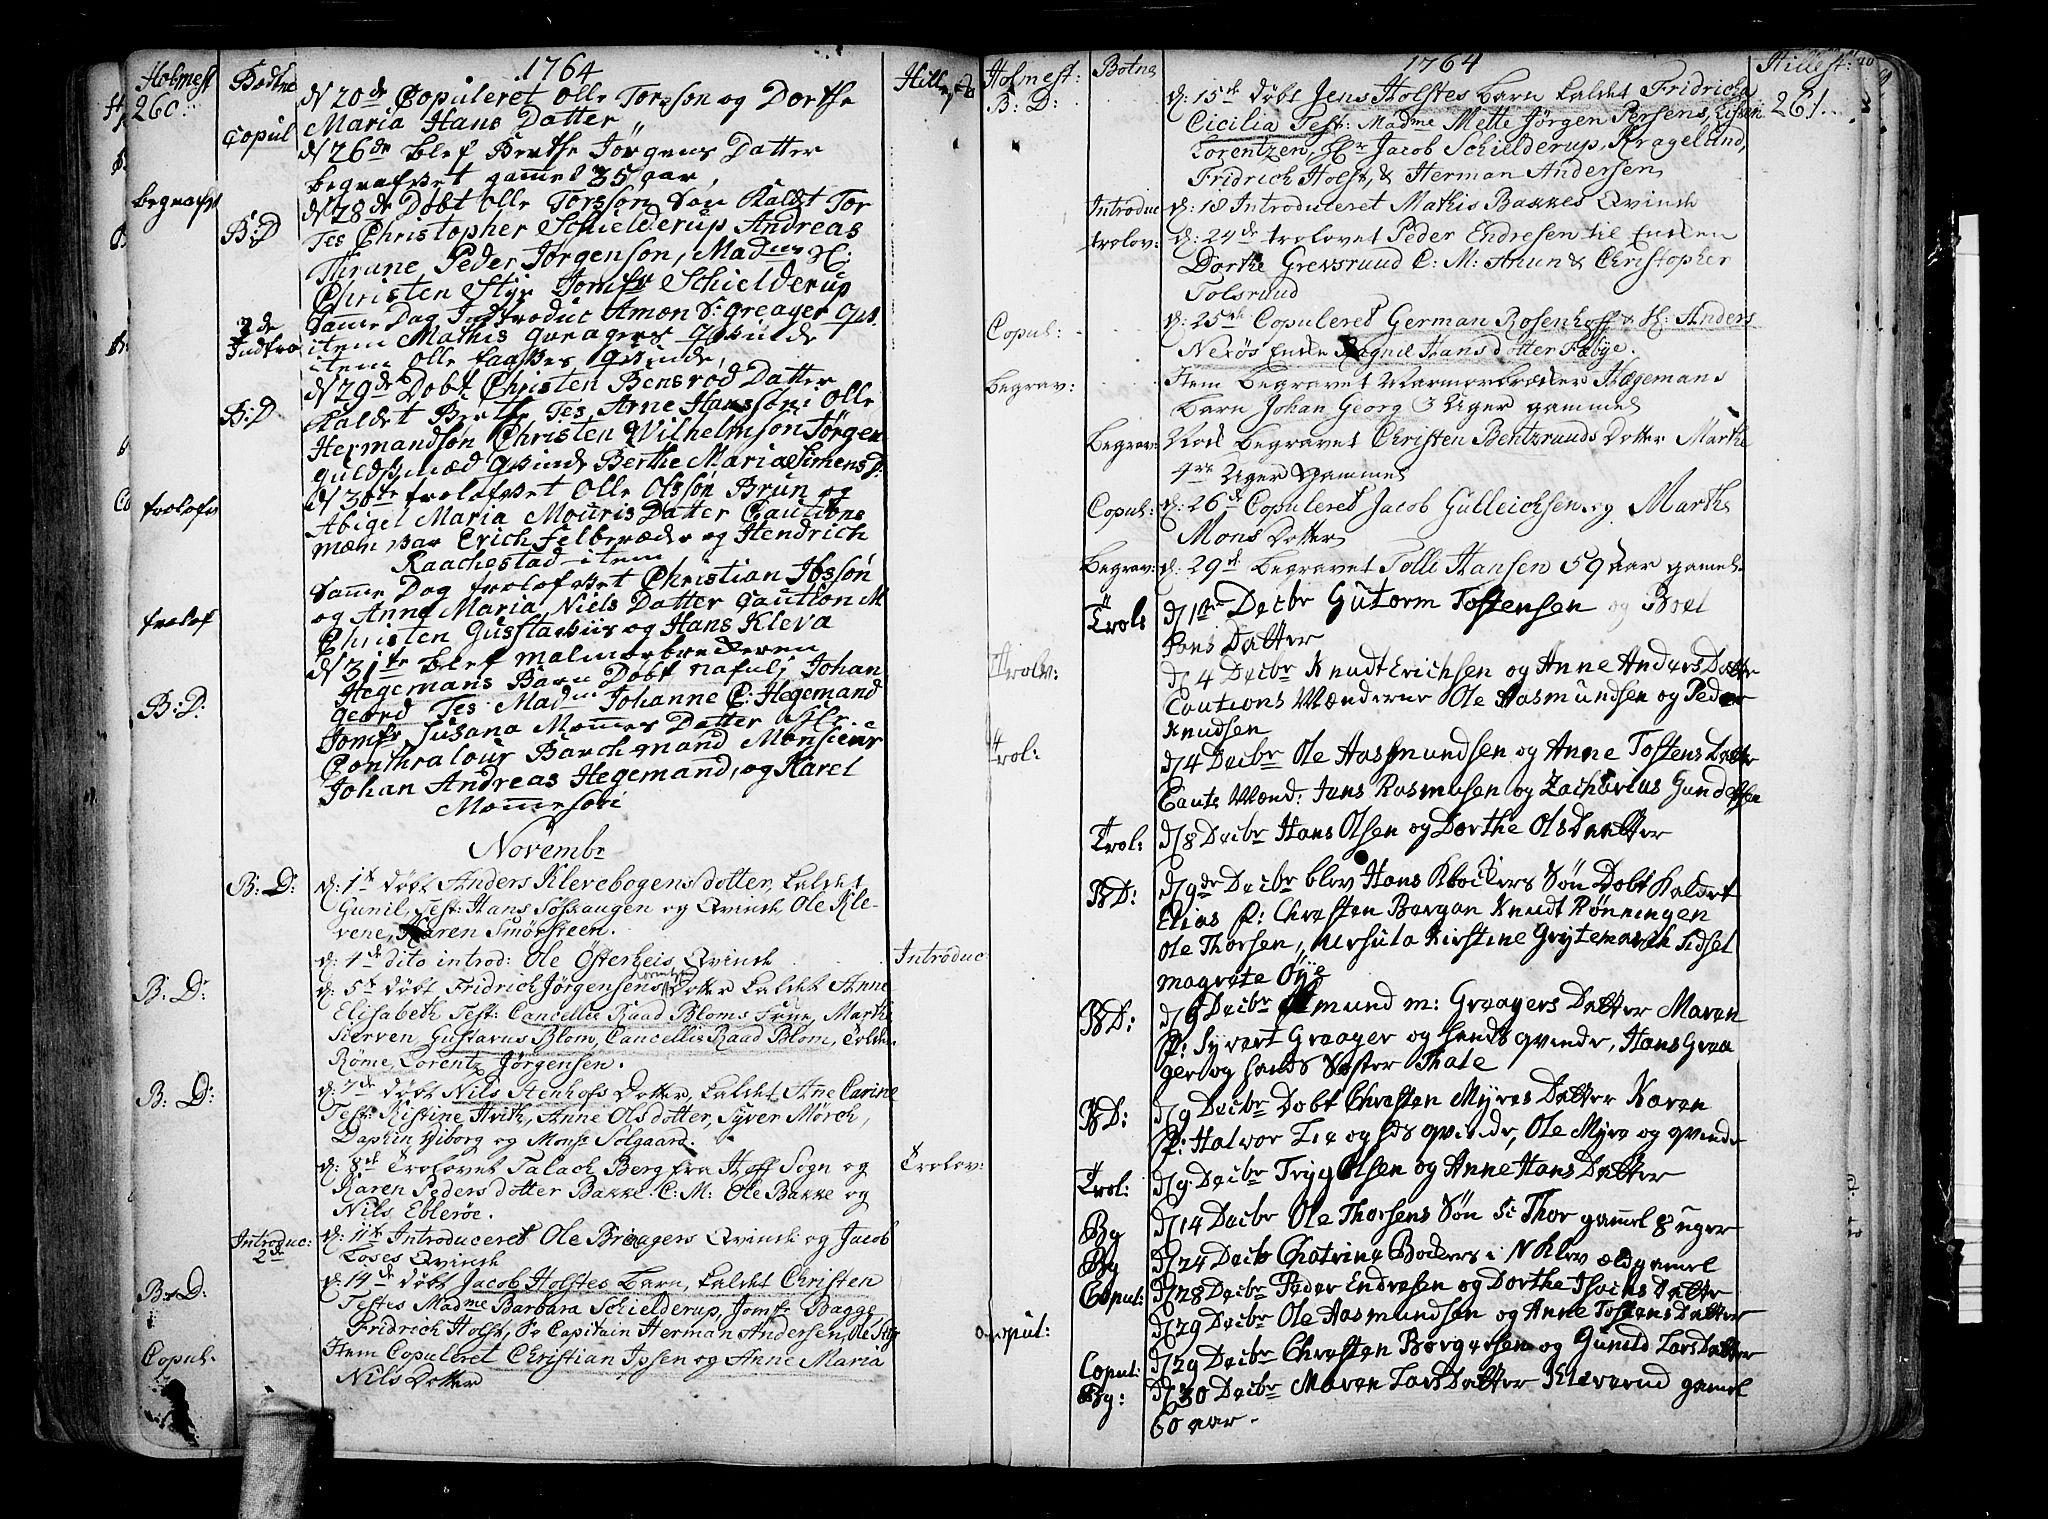 1764
Holmest Hille
260
dN 20de Copuleret Olle Torsson og Dorthe
Copul Maria Hans Datter
dN 26de blef Berthe Jörgens Datter
begrafvet gammel 35 aar,
dN 28de Dobt Olle Torssön Sön Kaldt Tor
B:D Tes Christopher Schielderup Andreas
Thrune Peder Jørgenson, Mad
Christen Styr Jomfr Schielderup
Samme Dag Indtroduc Amon
item Mathis qvinde
item Olle qvinde,
dN 29de Dobt Christen Bensröd Datter
B:D Kaldet Berthe Tes Arne Hansson Olle
Hermandsön Christen Wilhelmsön Jørgen
Guldsmed qvinde Berthe Maria Simens D:
trolofv dN 30te trolofvet Olle Olssön Brun og
Abigel Maria Mouris Datter Cautions
mæn var Erich og Hendrich
Raachestad item
Samme Dag trolofvet Christian Ibssön
trolof og Anne Maria Niels Datter Caution M
Christen og Hans Kleva
dN 31te blef malmorbrederen
Hegemans Barn Döbt Johan
B:D: Georg Tes Mad Johanne C: Hegemand
Jomfr Susana Mommes Datter
Barchmand Monsieur
Johan Andreas Hegemand, og Karel
Mommesön
Novembr
B: D: d: 1te döbt Anders Klevebogens dotter, kaldet
Gunil, Test: Hans og Qvinde Ole Kle-
vene, Karen
d: 4de dito introd: Ole Österheis Qvinde Introduc
B: D: d: 5te döbt Fridrich Jörgensens Dotter kaldet Anne
Elisabeth Test: Cancellie Raad Bloms Frue, Marthe
Gustavus Blom, Cancellie Raad Blom,
Röme, Lorentz Jörgensen.
B: D: d: 7de döbt Nils Stenhofs Dotter, kaldet Ane Carine
Test: Kistine Anne Olsdotter, Syver Mörch,
Viborg og Mons: Solgaard.
d: 8de Trolovet Talach Berg fra Hoff Sogn og Trolov:
Karen Peders dotter Bakke. C: M: Ole Bakke og
Nils Ebleröe.
Introduc: d: 11te Introduceret Ole Qvinde og Jacob
Qvinde
B: D: d: 14de döbt Jacob Holstes barn, kaldet Christen
Testes Madme Barbara Schielderup, Jomfr Bagge
Fridrich Holst, Sr Capitain Herman Andersen,
Copul. Item Copuleret Christian Ipsen og Anne Maria
Nils Dotter
Holmest: Botne 1764 Hillest:
B: D: d: 15de döbt Jens Holstes barn kaldet Fridricha 261.
Cicilia Test: Madme Mette Jörgen Persens,
Lorentzen, Hr Jacob Schielderup, Kragelund,
Fridrich Holst, & Herman Andersen
Introduc d: 18 Introduceret Mathis Bakkes Qvinde
trolov: d: 24de trolovet Peder Endresen til Enken
Dorthe Grevsruud C: M: Amun & Christopher
Tolsruud
Copul: d: 25de Copuleret German Rosenhoff & H: Anders
Nexös Enke Ragnil Hansdotter Fæbye.
begrav: Item begravet Marmorbrækker Hægemans
barn Johan Georg 3 Uger gammel
Begrav: Nok begravet Christen Bentzruuds Dotter Marthe
4re Uger Gammel
Copul: d: 26de Copuleret Jacob Gulleichsen og Marthe
Mons Dotter
Begrav: d: 29de begravet Tolle Hansen 59 aar gamel.
Trol: d/1te Decbr Gutorm Tostensen og Boel
Datter
Trolv: d/4 Decbr Knudt Erichsen og Anne Anders Datter
Cautions Mænderne Ole Aasmundsen og Peder
Knudsen
Trol: d/4 Decbr Ole Aasmundsen og Anne Tostens Datter
Caut: Mænd: Jens Rasmusen og Zacharias Gundersen
Trol: d/8 Decbr Hans Olsen og Dorthe Ols Datter
BD: d/9de Decbr blev Hans Kbockers Søn Dobt Kaldet
Elias F: Chresten Bargan Knudt Rønningen
Ole Thorsen, Ursula Kirstine Grytemarch Sidsel
magrete Öÿe
BD: d/9 Decbr Amund m: Graagers Datter Maren
F: Syvert Graager og hands qvinde, Hans Graa
ger og hands Søster Thale
BD: d/9 Decbr Dobt Chresten Myres Datter Karen
F: Halvor Lie og hds qvinde, Ole Myre og qvinde
Trol: d/9 Decbr Tryg Olsen og Anne Hans Datter
Bg d/14 Decbr Ole Thorsens Søn Thor gamel 8 uger
Bg d/24 Decb Chatrine Bockers i N Klev ældgamel
Copul: d/28 Decbr Peder Endresen og Dorthe Datter
Copul: d/29 Decbr Ole Aasmundsøn og Anne Tostens Datter
Copul: d/29 Decbr Chresten Borgersen og Gunild Lars Datter
Bg: d/30 Decbr Maren Lars Datter Kleverud gamel
60 aar.